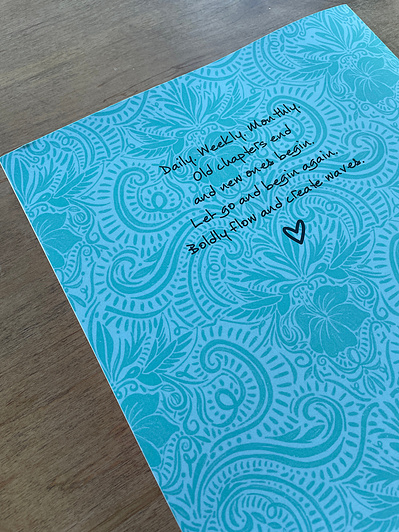 Daily. Weekly. Monthly.
Old chapters end
and new ones begin.
Let go and begin again.
Boldly flow and create waves.